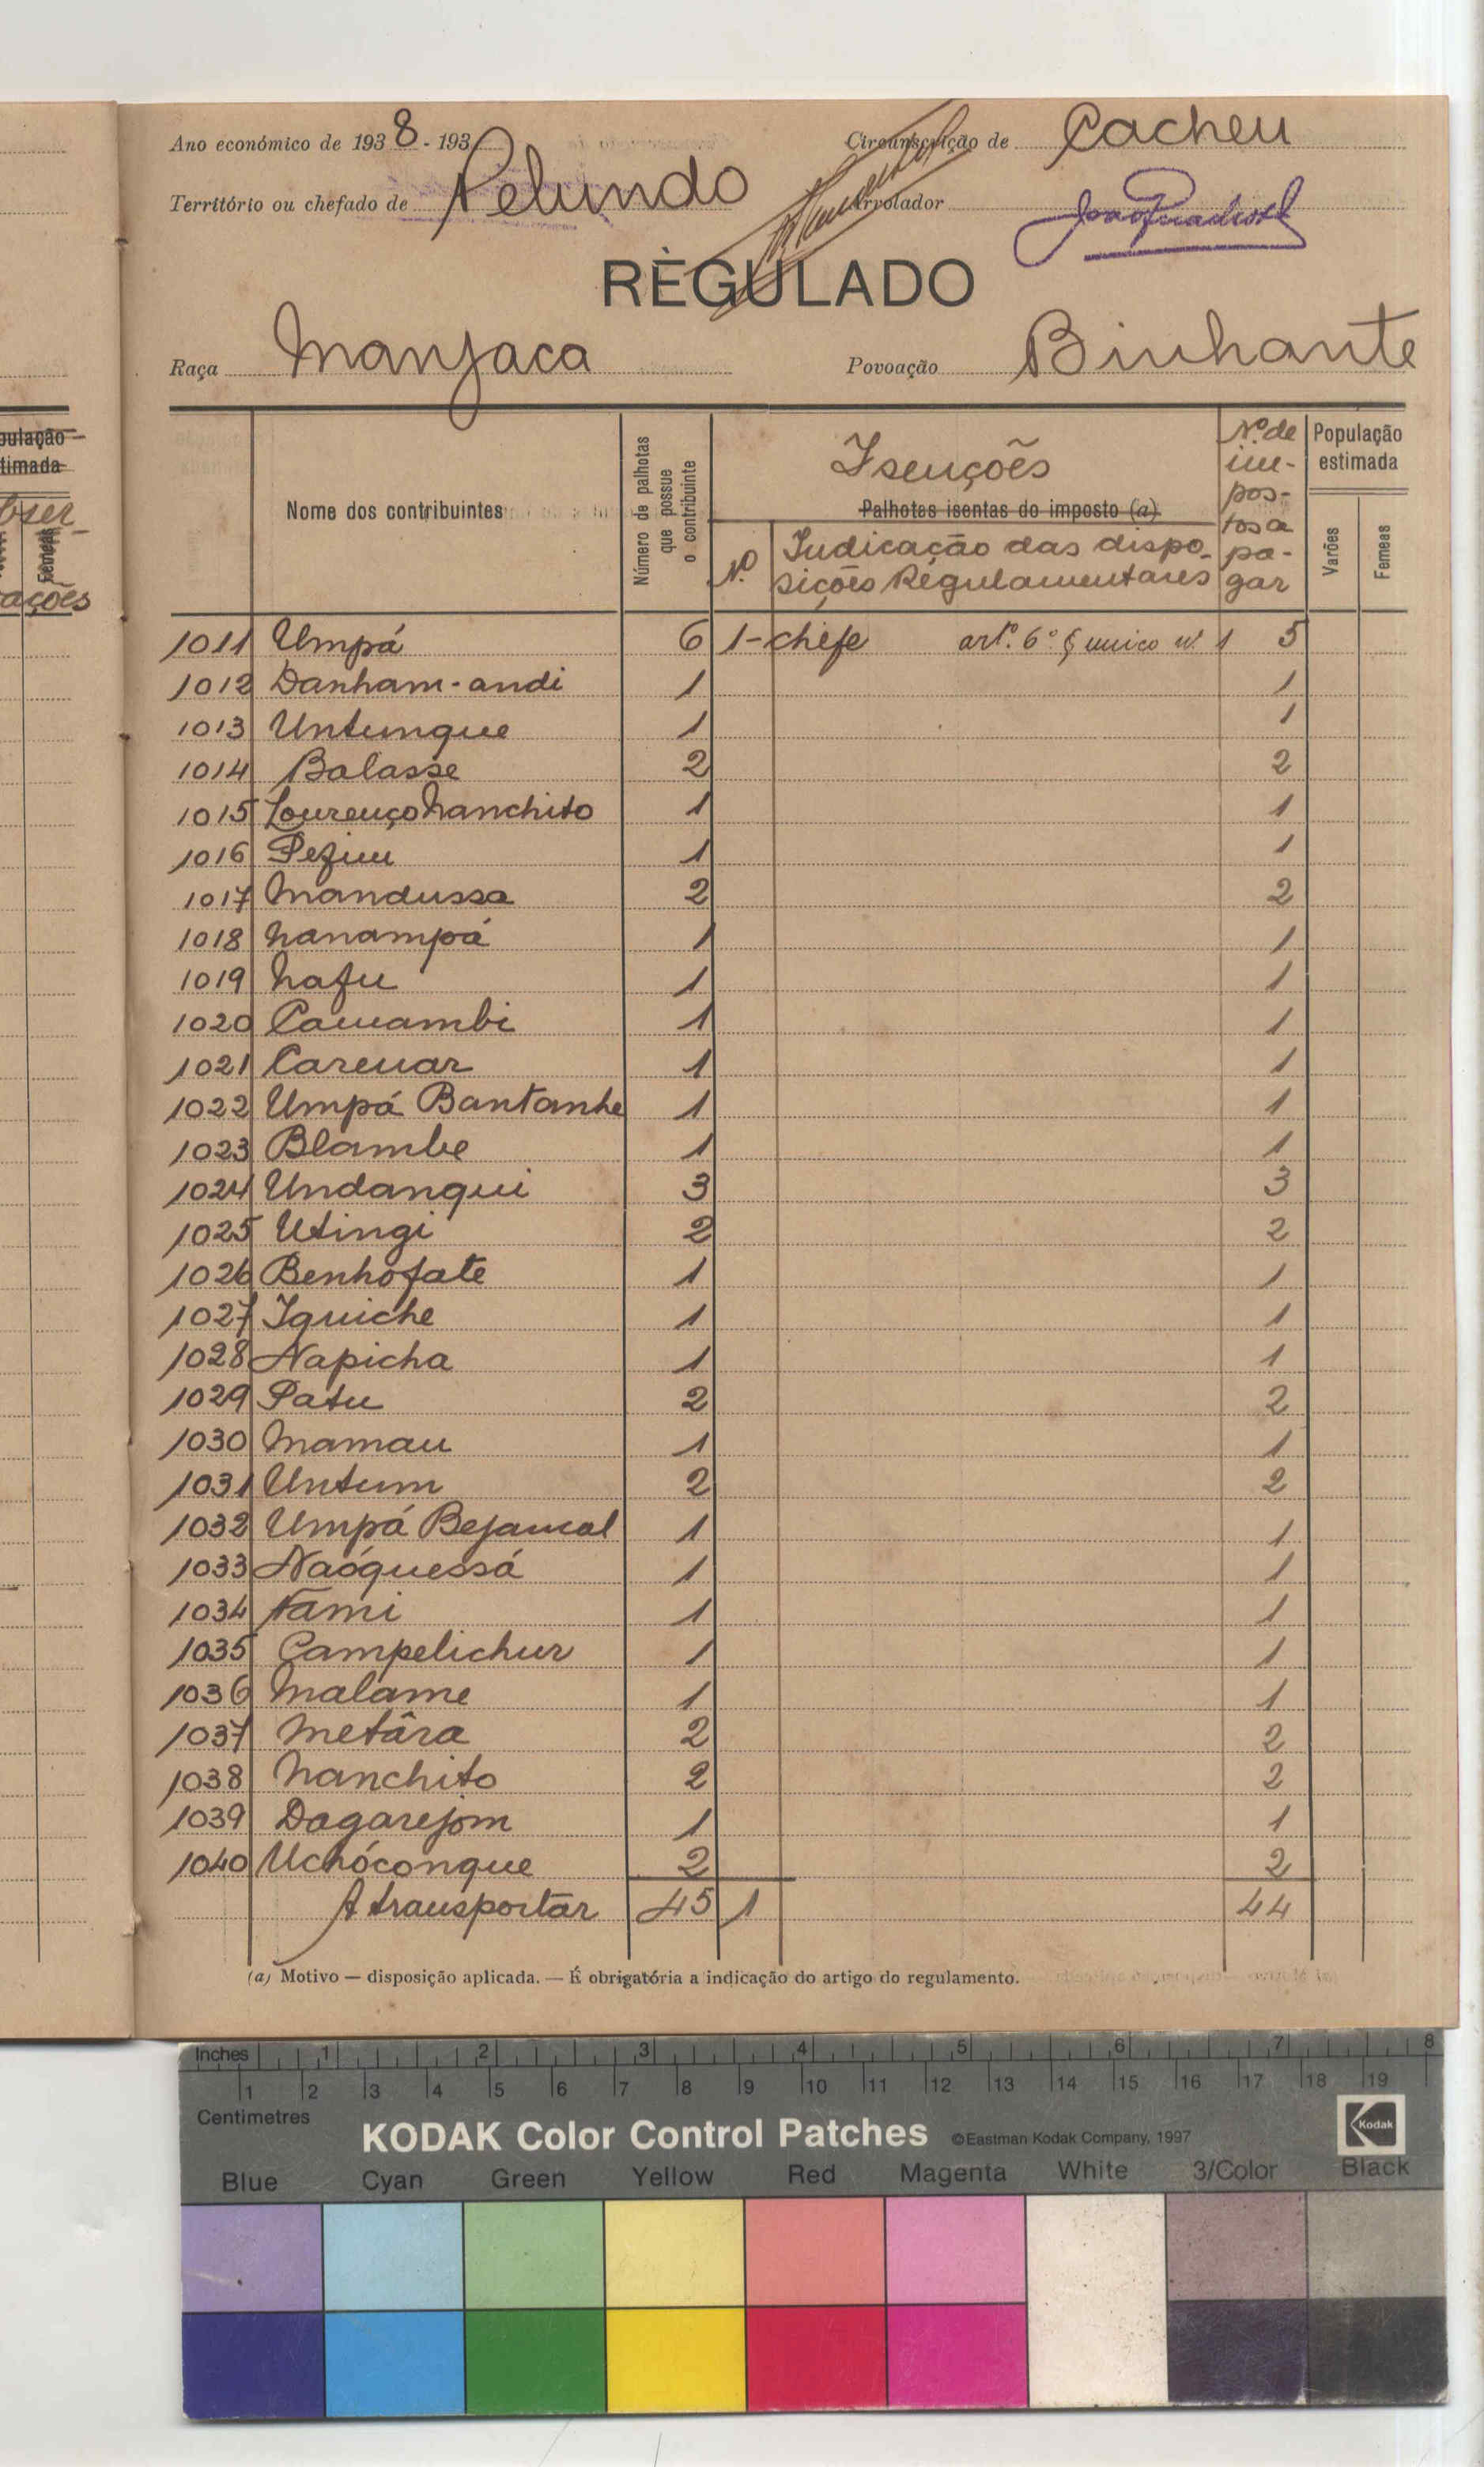 Ano económico de 1938-193 Circunscrição de Cacheu
Território ou chefado de Pelundo Arrolador
RÈGULADO
Raça Manjaca Povoação Binhante
pulação
timada
obser-
Fêmeas
ações
Nome dos contribuintes
Número de palhotas que possue o contribuinte
Isenções
Palhotas isentas do imposto (a)
N.º Indicação das dispo-
sições Regulamentares
Nº de
im-
pos-
tos a
pa-
gar
População
estimada
Varões
Femeas
1011 Umpá 6 1-chefe artº. 6º § unico nº 1 5
1012 Danham-andi 1 1
1013 Untungue 1 1
1014 Balasse 2 2
1015 Lourenço Nanchito 1 1
1016 Pezim 1 1
1017 Mandussa 2 2
1018 Nanampá 1 1
1019 Nafu 1 1
1020 Camambi 1 1
1021 Carenar 1 1
1022 Umpá Bantanhe 1 1
1023 Blambe 1 1
1024 Undangui 3 3
1025 Utingi 2 2
1026 Benhofate 1 1
1027 Iquiche 1 1
1028 Napicha 1 1
1029 Patu 2 2
1030 Mamau 1 1
1031 Untum 2 2
1032 Umpá Bejamal 1 1
1033 Naóquessá 1 1
1034 Fami 1 1
1035 Campelichur 1 1
1036 Malame 1 1
1037 Metâra 2 2
1038 Nanchito 2 2
1039 Dagarejom 1 1
1040 Uchóconque 2 2
A transportar 45 1 44
(a) Motivo — disposição aplicada. — É obrigatória a indicação do artigo do regulamento.
Inches 1 2 3 4 5 6 7 8
1 2 3 4 5 6 7 8 9 10 11 12 13 14 15 16 17 18 19
Centimetres
KODAK Color Control Patches ©Eastman Kodak Company, 1997 Kodak
Blue Cyan Green Yellow Red Magenta White 3/Color Black